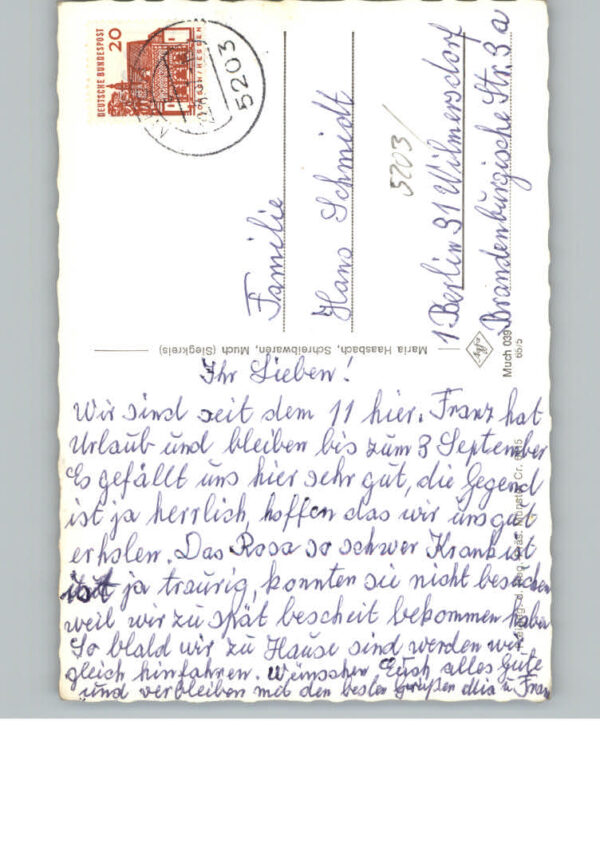 DEUTSCHE BUNDESPOST
20
LORSCH/HESSEN
5203
Familie
Hans Schmidt
5203/
1 Berlin 31 Wilmersdorf
Brandenburgische Str. 3 a
Maria Haasbach, Schreibwaren, Much (Siegkreis)
Agfa
Much 039
65/5
Ihr Lieben!
Wir sind seit dem 11 hier. Franz hat
Urlaub und bleiben bis zum 3 September
Es gefällt uns hier sehr gut, die Gegend
ist ja herrlich, hoffen das wir uns gut
erholen. Das Rosa so schwer Krank ist
ist ja traurig, konnten sie nicht besuchen
weil wir zu spät bescheit bekommen haben
So blald wir zu Hause sind werden wir
gleich hinfahren. Wünschen Euch alles Gute
und verbleiben mit den besten Grüßen Mia u Franz